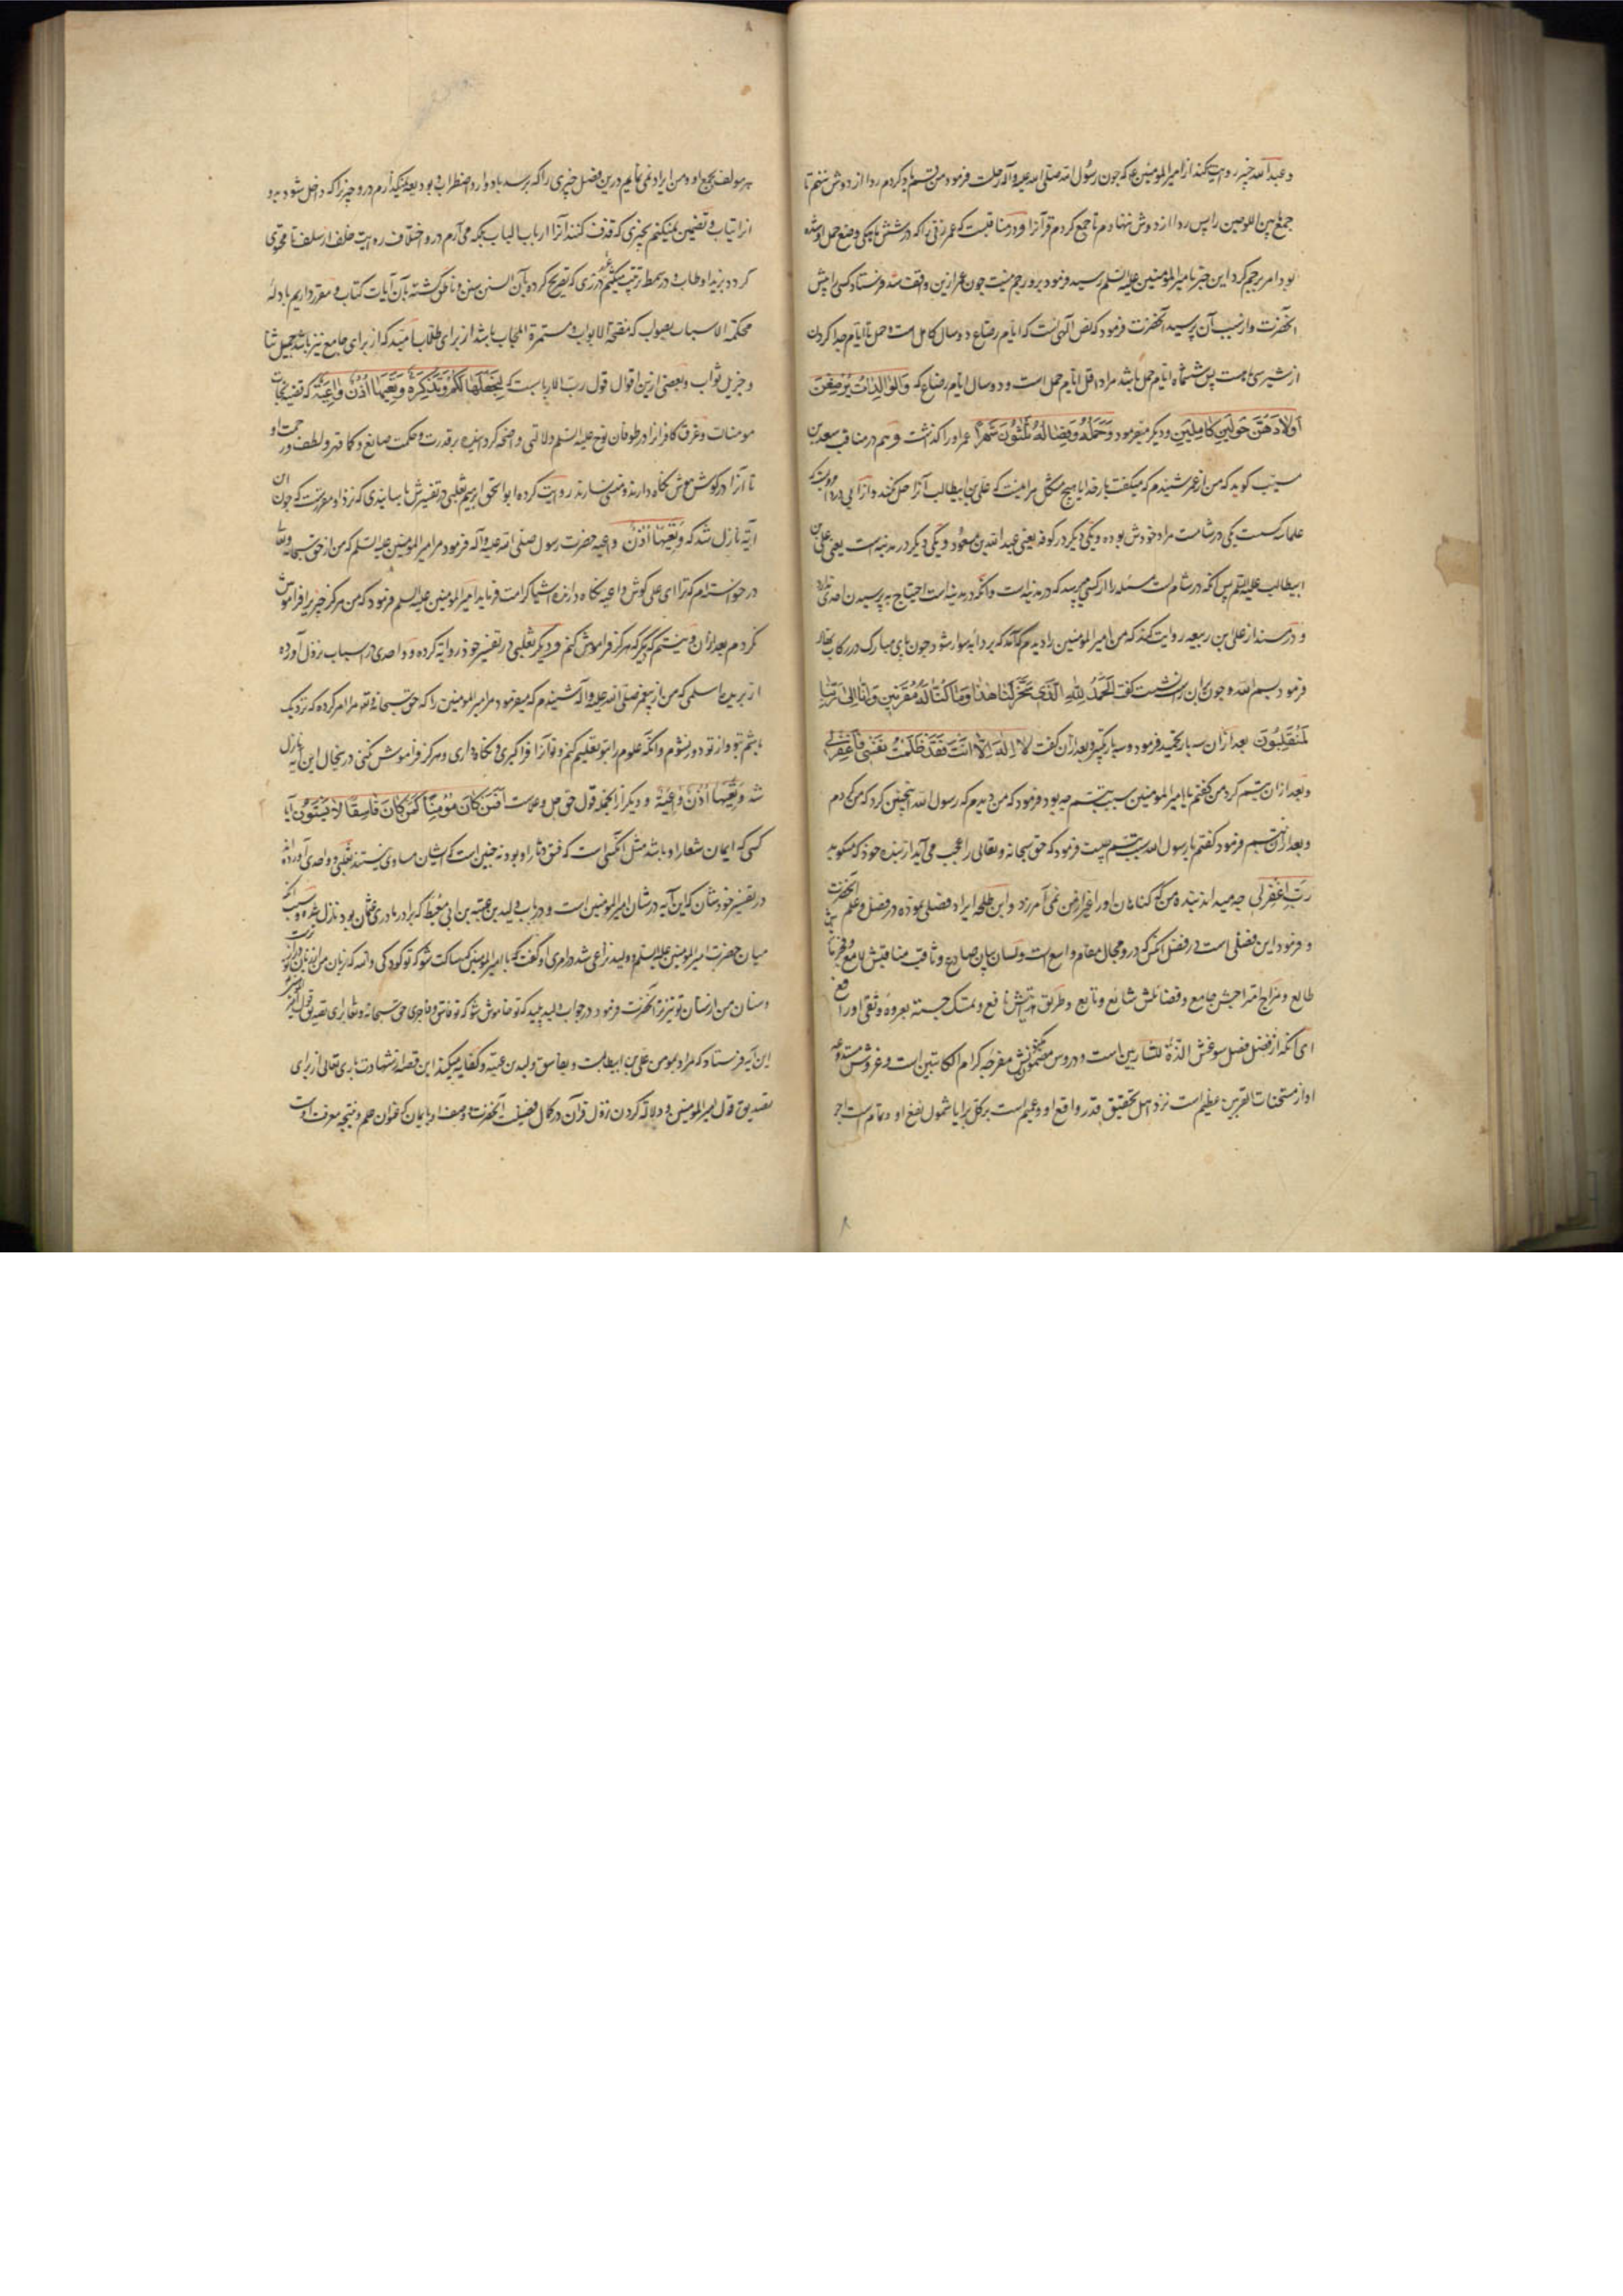 و عبد اله خیر روایت کند از امیر المومنین ع که چون رسول الله صلی الله علیه و اله رحلت فرمود من قسم یاد کردم ردا از دوش ننهم تا
جمع ما بین اللوحین را پس ردا از دوش ننهادم تا جمع کردم قرآنرا و در مناقبست که عمر زنی را که در شش ماهکی وضع حمل او شده
بود امر برجم کرد این خبر بامیر المومنین علیه السلم رسید فرمود برو رجم نیست چون عمر ازین واقف شد فرستاد کسی را پیش
آنحضرت و از سبب آن پرسید آنحضرت فرمود که نص الهی است که ایام رضاع دو سال کامل است و حمل تا ایام جدا کردن
از شیر سی ماهست پس ششماه ایام حمل باشد مراد اقل ایام حمل است و دو سال ایام رضاع که وَالوَالِدَاتُ یُرْضِعْنَ
اَوْلَادَهُنَّ حَوْلَیْنِ کَامِلَیْنِ و دیگر میفرمود وَحَمْلُهُ وَفِصَالُهُ ثَلٰثُونَ شَهْرًا عمر او را گذاشت و هم در مناقب سعید بن
مسیّب گوید که من از عمر شنیدم که میگفت بار خدایا هیچ مشکل مرا میت که علی بن ابیطالب آنرا حل کند و از ابی دردا مرویست که
علما سه کس است یکی در شام است مراد خودش بوده و یکی دیگر در کوفه یعنی عبد الله بن مسعود و یکی دیگر در مدینه است یعنی علی بن
ابیطالب علیه السلم پس آنکه در شام است مسئله را از کسی میپرسد که در مدینه است و آنکه در مدینه است احتیاج به پرسیدن احدی ندارد
و در مسند از علی بن ربیعه روایت کند که من امیر المومنین را دیدم گاهی که بر دابه سوار شود چون پای مبارک در رکاب نهاد
فرمود بسم الله و چون بران راست نشست گفت اَلْحَمْدُ لِلّٰهِ الَّذِی سَخَّرَ لَنَا هٰذَا وَمَا کُنَّا لَهُ مُقْرِنِینَ وَاِنَّا اِلٰی رَبِّنَا
لَمُنْقَلِبُونَ بعد ازان سه بار تحمید فرمود و سه بار تکبیر و بعد ازان گفت لَا اِلٰهَ اِلَّا اَنْتَ فَقَدْ ظَلَمْتُ نَفْسِی فَاغْفِرْلِی
و بعد ازان تبسم کرد من گفتم یا امیر المومنین سبب تبسم چه بود فرمود که من دیدم که رسول الله اینچنین کرد که من کردم
و بعد ازان تبسم فرمود گفتم یا رسول الله سبب تبسم چیست فرمود که حق سبحانه و تعالی را عجب می آید از بنده خود که میگوید
رَبِّ اغْفِرْلِی چه میداند بنده من که گناهان او را غیر از من نمی آمرزد و ابن طلحه ایراد فصلی نموده در فضل و علم آنحضرت
و فرمود این فصلی است در فضل آنکس که در و مجال مقام واسع است و لسان بیان صادح و ثاقب مناقبش لامع و فجر
طالع و مزاج امتراجش جامع و فضائلش شائع و ذایع و طریق هدیتش نافع و تمسک جسته بعروه وثقی او را
ای آنکه از فضل فصل سوغش الذّة للشاربین است و دروس مضمونش مفرحه کرام الکاتبین است و غروش
او از مستحنات المقربین عظیم است نزد اهل تحقیق قدر واقع او و عمیم است بر کل برایا شمول نفع او و تمامست اجر
هر مولف بجمع او و من ایراد نمی نمایم درین فصل چیزی را که برسد باو وارد اضطراب و بود بعد نمیگذارم در و چیزی را که داخل شود برو
ارتیاب و تضمین نمیکنم بچیزی که قذف کنند آنرا ارباب الباب بلکه می آرم در و اختلاف روایت خلف از سلف تا محتوی
گردد برید اوطاب و در سمط ترتیب میکنم درزی که تصریح کرده بآن السن سنن و ناطق گشته بآن آیات کتاب و مقرر داریم بادله
محکمة الاسباب بصواب که مفتحة الابواب و مستمرة الجاب باشد از برای طلاب امید که از برای جامع نیز باشد جمیل ثنا
و جزیل ثواب و بعضی ازین اقوال قول رب الارباب است که لِنَجْعَلَهَا لَکُمْ تَذْکِرَةً وَتَعِیَهَا اُذُنٌ وَاعِیَةٌ که قضیه نجات
مومنان و غرق کافرانرا در طوفان نوح علیه السلم دلالتی واضحه گردانیده بر قدرت و حکمت صانع و کمال قهر و لطف و رحمت او
تا آنرا در گوش هوش نگاه دارند و منسی نسازند روایت کرده ابو اسحق ابرهیم ثعلبی در تفسیرش باسانیدی که نزد او مقررست که چون این
آیه نازل شد که وَتَعِیَهَا اُذُنٌ واعیه حضرت رسول صلی الله علیه و آله فرمود مر امیر المومنین علیه السلم که من از حق سبحانه و تعالی
در خواسته ام که ترا ای علی گوش واعیه نگاه دارنده اشیا کرامت فرماید امیر المومنین علیه السلم فرمود که من هرگز چیزیرا فراموش
نکردم بعد ازان و نیستم که دیگر هرگز فراموش کنم و دیگر ثعلبی در تفسیر خود روایة کرده و واحدی در اسباب نزول آورده
از بریده اسلمی که من از پیغمبر صلی الله علیه و آله شنیدم که میفرمود مر امیر المومنین را که حق سبحانه و تعالی مرا امر کرده که نزدیک
باشم بتو و از تو دور نشوم و آنکه علوم را بتو تعلیم کنم و تو آنرا فراگیری و نگاه داری و هرگز فراموش نکنی در همان حال این آیه نازل
شد وَتَعِیَهَا اُذُنٌ وَاعِیَةٌ و دیگر از انجمله قول حق جل و علاست اَفَمَنْ کَانَ مُؤْمِنًا کَمَنْ کَانَ فَاسِقًا لَا یَسْتَوُونَ آیا
کسی که ایمان شعار او باشد مثل آنکسی است که فسق دثار او بود نه چنین است که ایشان مساوی نیستند ثعلبی و واحدی آورده اند
در تفسیر خودشان که این آیه در شان امیر المومنین است و در باب ولید بن عقبه بن ابی معیط که برادر مادری عثمان بود نازل شده و سبب آنکه
میان حضرت امیر المومنین علیه السلم و ولید نزاعی شد در امری او گفت که یا امیر المومنین ساکت شو که تو کودکی والله که زبان من از زبان تو
و سنان من از سنان تو تیزتر آنحضرت فرمود در جواب ولید پلید که تو خاموش شو که تو فاسق و فاجری حق سبحانه و تعالی برای تصدیق قول
این آیه فرستاد که مراد بمومن علی بن ابیطالبست و بفاسق ولید بن عقبه و کفایه میکند این قصه از شهادت باری تعالی از برای
تصدیق قول امیر المومنین و دلالة کردن نزول قرآن در کمال فضیلت آنحضرت و وصف او بایمان که عنوان علم و نتیجه معرفت اوست